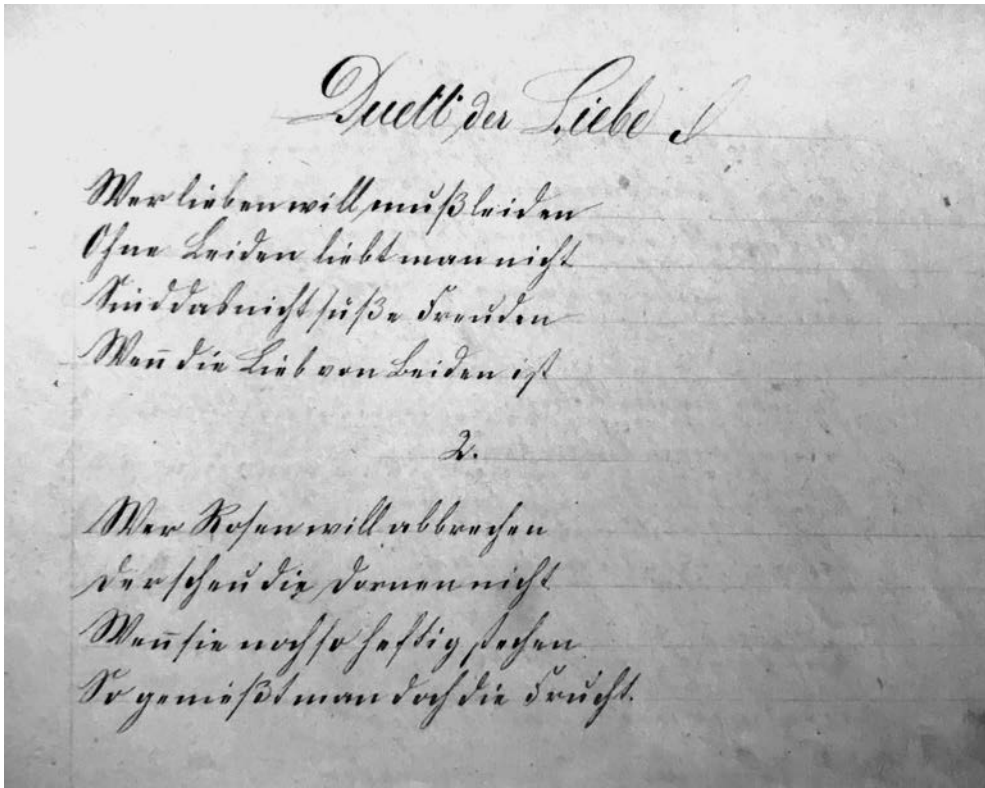 Duett der Liebe
Wer lieben will muß leiden
Ohne Leiden liebt man nicht
Sind das nicht süße Freuden
Weñ die Lieb von Beiden ist
2.
Wer Rosen will abbrechen
Der scheu die Dornen nicht
Weñ sie noch so heftig stechen
So genießt man doch die Frucht.